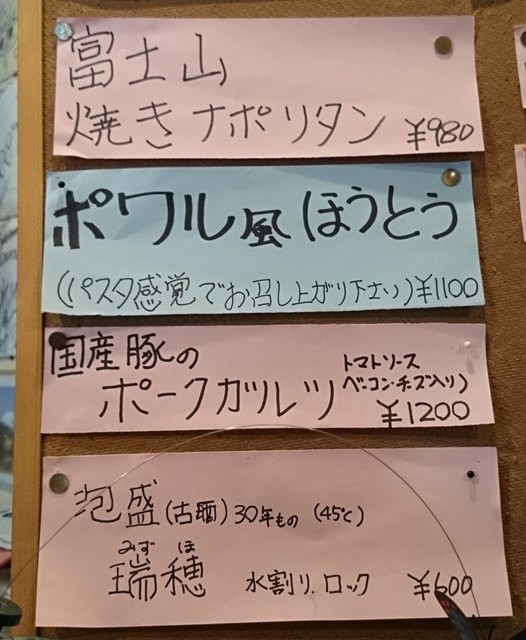 富士山
焼きナポリタン ¥980
ポワル風ほうとう
(パスタ感覚でお召し上がり下さい)¥1100
国産豚の
ポークカツレツ
トマトソース
ベーコン・チーズ入り)
¥1200
泡盛(古酒)30年もの (45℃)
みず ほ
瑞穂 水割り.ロック ¥600